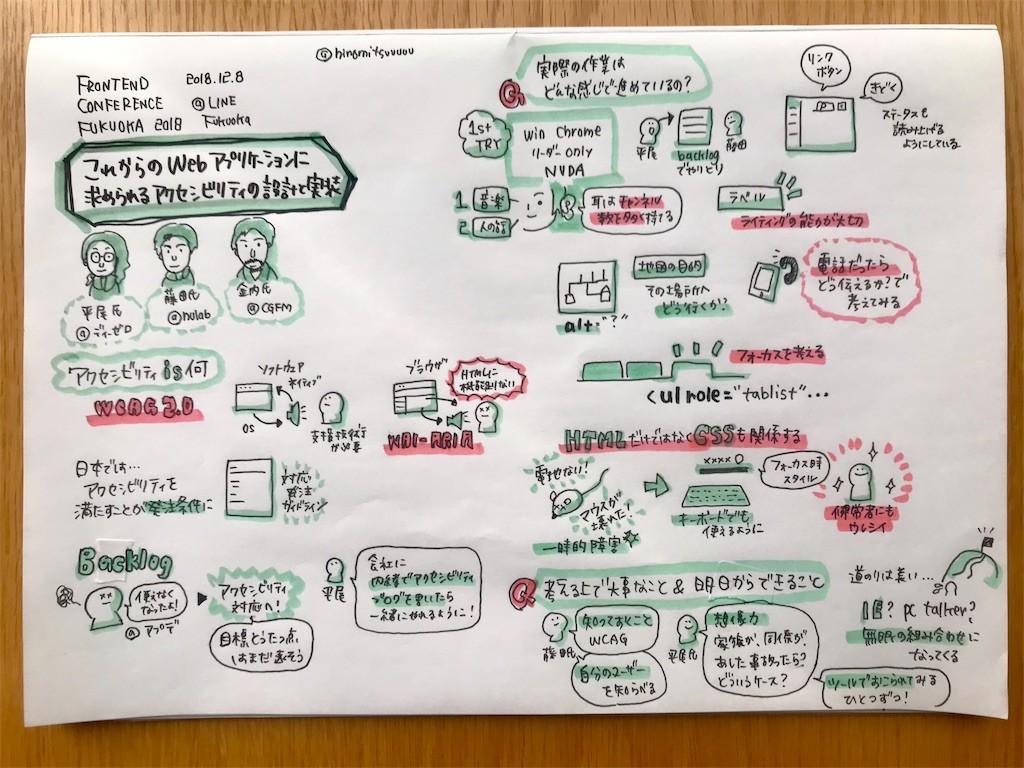 @hinamitsuuuuu
FRONTEND
CONFERENCE
FUKUOKA 2018
2018.12.8
@LINE
Fukuoka
これからのWebアプリケーションに
求められるアクセシビリティの設計と実装
平尾氏
@ディーゼロ
藤田氏
@nulab
金内氏
@CGFM
アクセシビリティis何
WCAG 2.0
ソフトウェア
ネイティブ
OS
支援技術が
必要
ブラウザ
HTMLに
WAI-ARIA
日本では…
アクセシビリティを
満たすことが発注条件に
対応
発注
ガイドライン
Backlog
使えなく
なったよ!
@アプデ
アクセシビリティ
対応へ!
目標とうたつ点
はまだ遠そう
平尾
会社に
内緒でアクセシビリティ
ブログを書いたら
一緒にやれるように!
Q.
実際の作業は
どんな感じで進めているの?
1st
TRY
Win Chrome
リーダーOnly
NVDA
平尾
backlog
でやりとり
藤田
リンク
ボタン
きどく
ステータスも
読み上げる
ようにしている
1.音楽
2.人の話
耳はチャンネル
数を多く持てる
ラベル
ライティングの能力が大切
alt="?"
地図の目的
その場所へ
どう行くか?
電話だったら
どう伝えるか?で
考えてみる
フォーカスを考える
<ul role="tablist"…
HTMLだけではなくCSSも関係する
電池ない!
マウスが
壊れた!
一時的障害
xxxx
キーボードでも
使えるように
フォーカス時
スタイル
健常者にも
ウレシイ
Q.
考える上で大事なこと & 明日からできること
藤田氏
知っておくこと
WCAG
自分のユーザー
を知らべる
平尾氏
想像力
家族が、同僚が
あした事故ったら?
どういうケース?
道のりは長い…
IE? PC talker?
無限の組み合わせに
なってくる
ツールでおこられてみる
ひとつずつ!